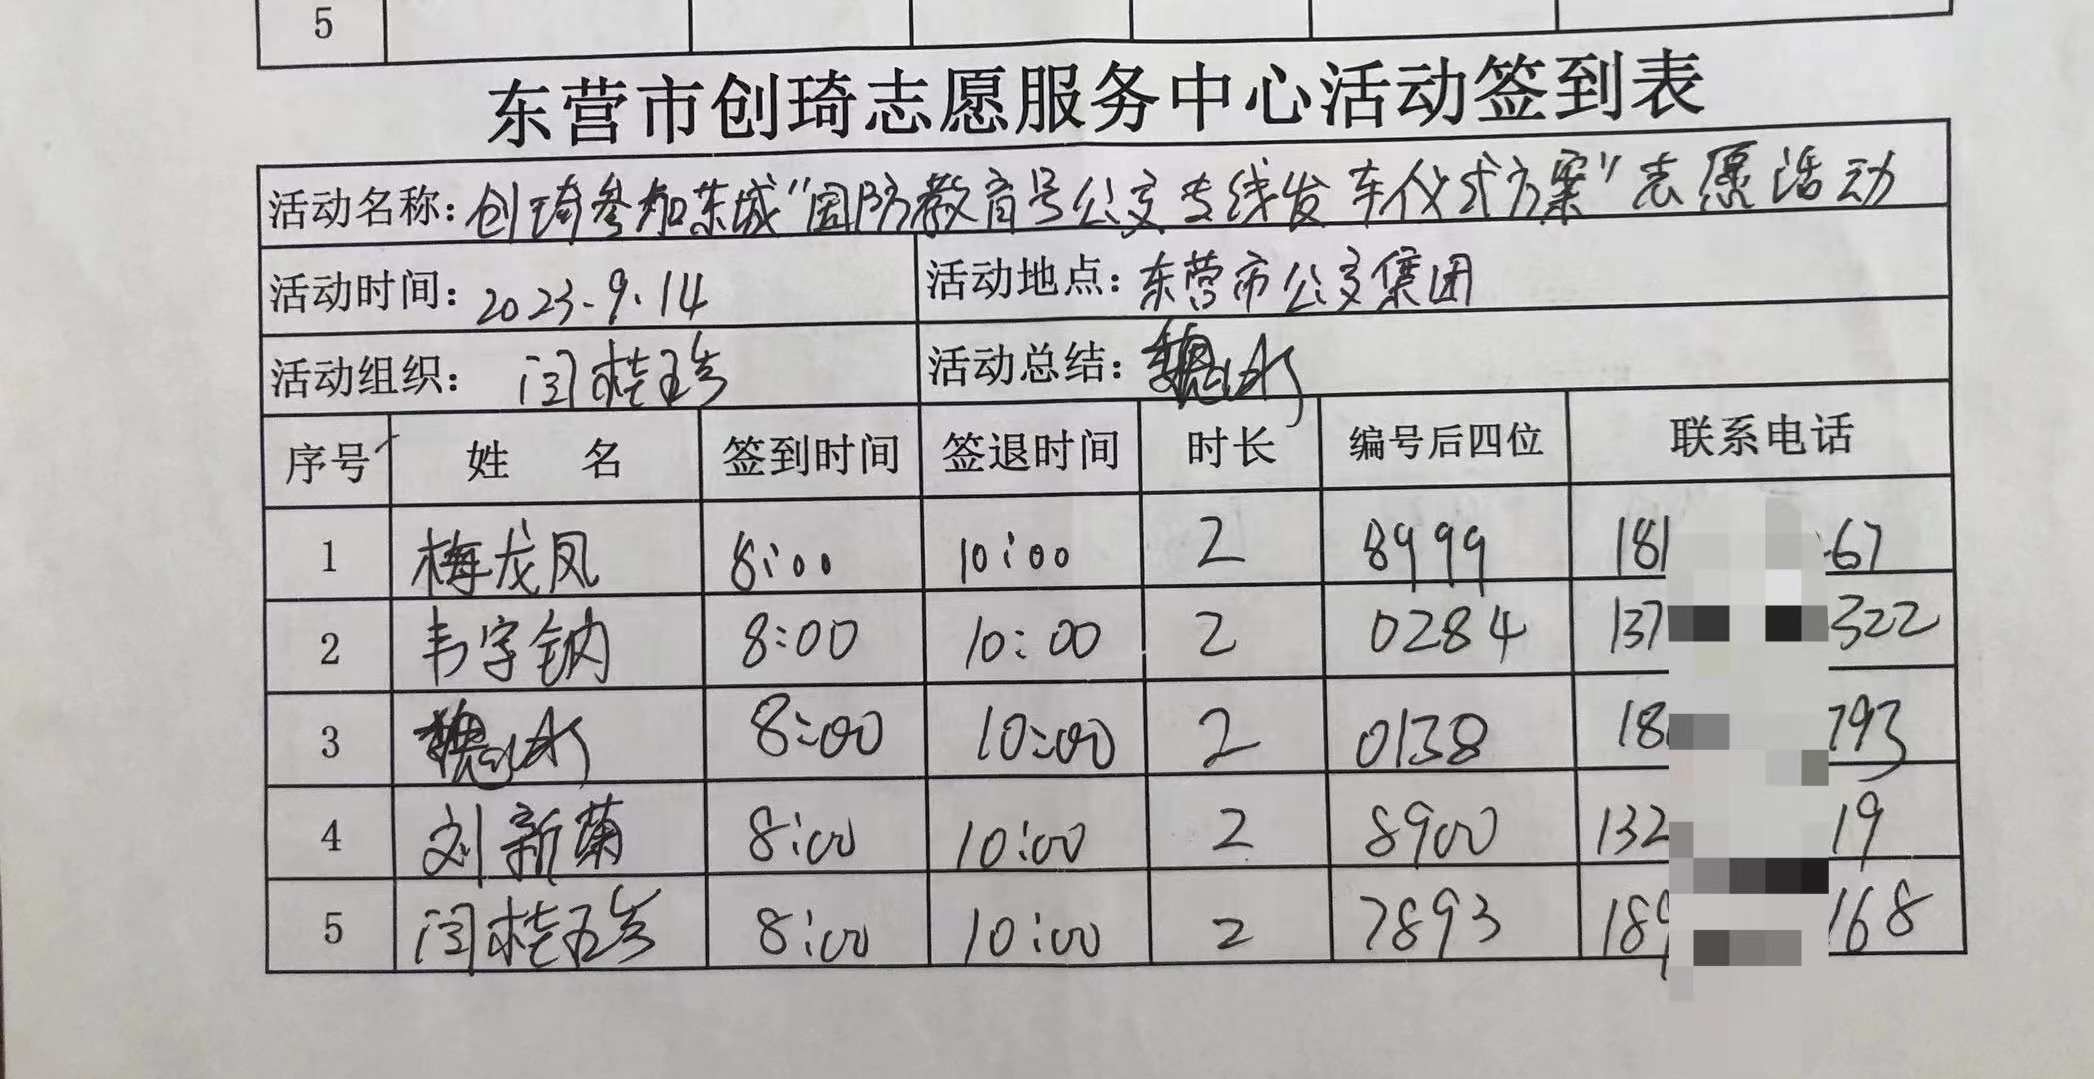 5
东营市创琦志愿服务中心活动签到表
活动名称：创琦参加东城“国防教育号公交专线发车仪式方案”志愿活动
活动时间：2023.9.14 活动地点：东营市公交集团
活动组织：闫桂珍 活动总结：
序号 姓 名 签到时间 签退时间 时长 编号后四位 联系电话
1 梅龙凤 8:00 10:00 2 8999 181 67
2 韦字钠 8:00 10:00 2 0284 137 322
3 8:00 10:00 2 0138 18 793
4 刘新菊 8:00 10:00 2 8900 132 19
5 闫桂珍 8:00 10:00 2 7893 189 168